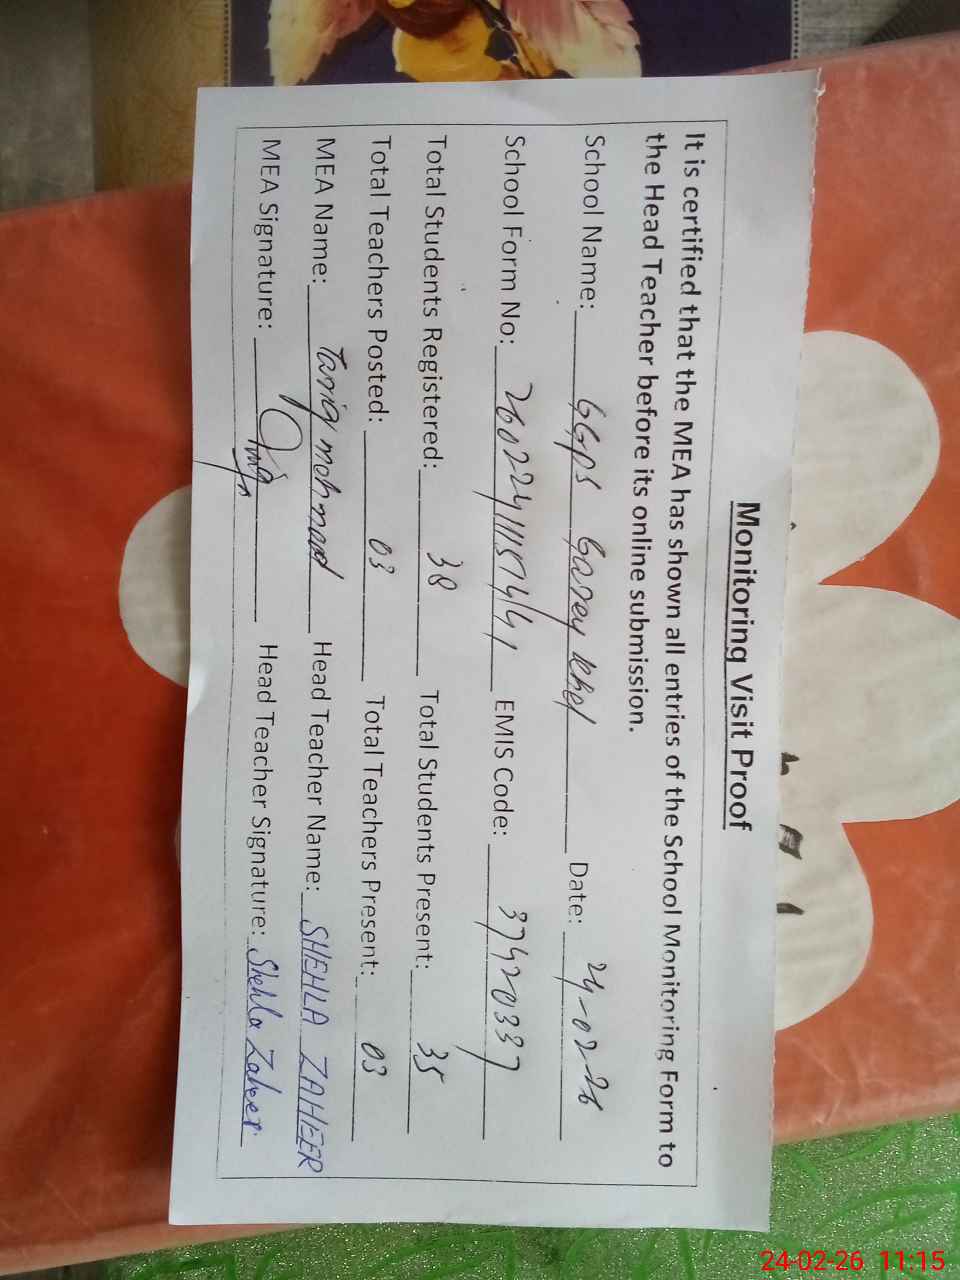 Monitoring Visit Proof
It is certified that the MEA has shown all entries of the School Monitoring Form to
the Head Teacher before its online submission.
School Name: GGPS Garey Khel Date: 24-02-26
School Form No: EMIS Code: 37420337
Total Students Registered: 38 Total Students Present: 35
Total Teachers Posted: 03 Total Teachers Present: 03
MEA Name: Tariq mohmad Head Teacher Name: SHEHLA ZAHEER
MEA Signature: Head Teacher Signature: Shehla Zaheer
24-02-26 11:15